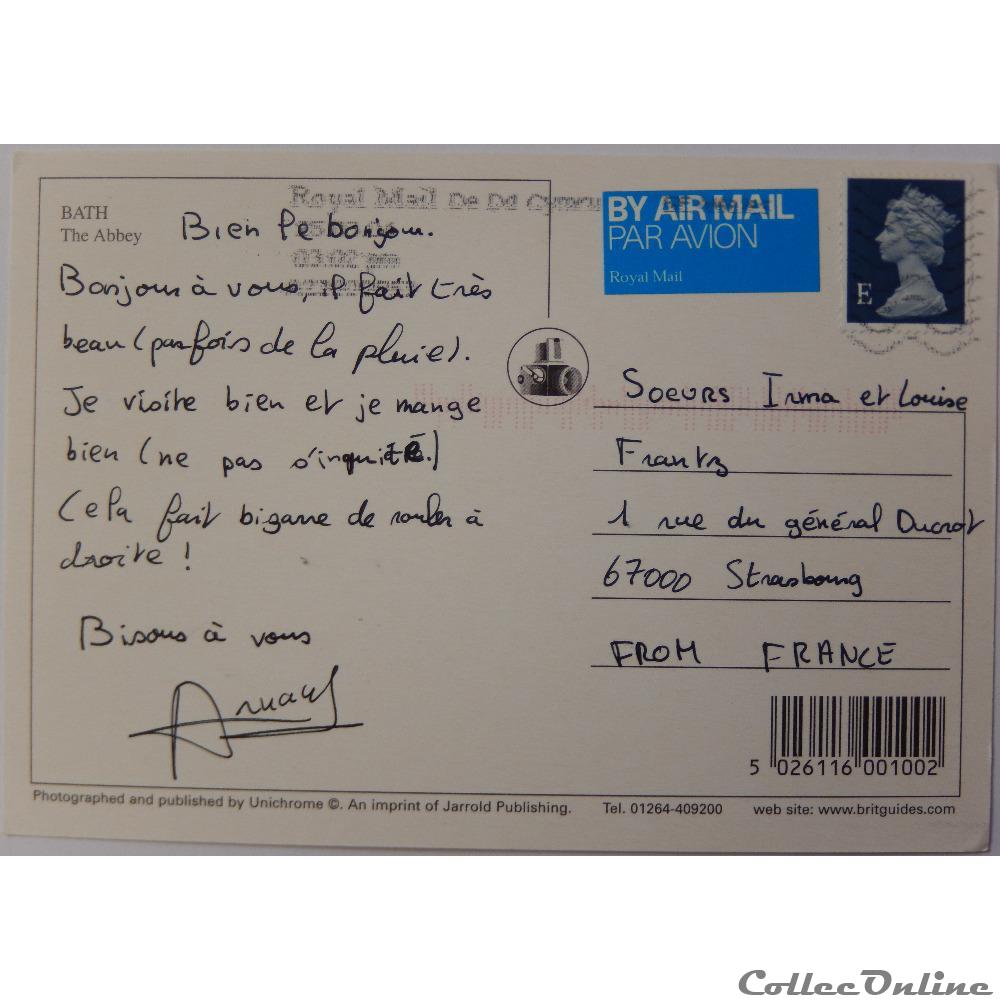 BATH
The Abbey
Royal Mail De Dd Cymru
Bien le bonjour.
Bonjour à vous, il fait très
beau (parfois de la pluie).
Je visite bien et je mange
bien (ne pas s'inquiété.)
Cela fait bizarre de rouler à
droite !
Bisous à vous
Arnaud
BY AIR MAIL
PAR AVION
Royal Mail
E
Soeurs Irma et Louise
Frantz
1 rue du général Ducrot
67000 Strasbourg
FROM FRANCE
5 026116 001002
Photographed and published by Unichrome ©. An imprint of Jarrold Publishing. Tel. 01264-409200 web site: www.britguides.com
CollecOnline